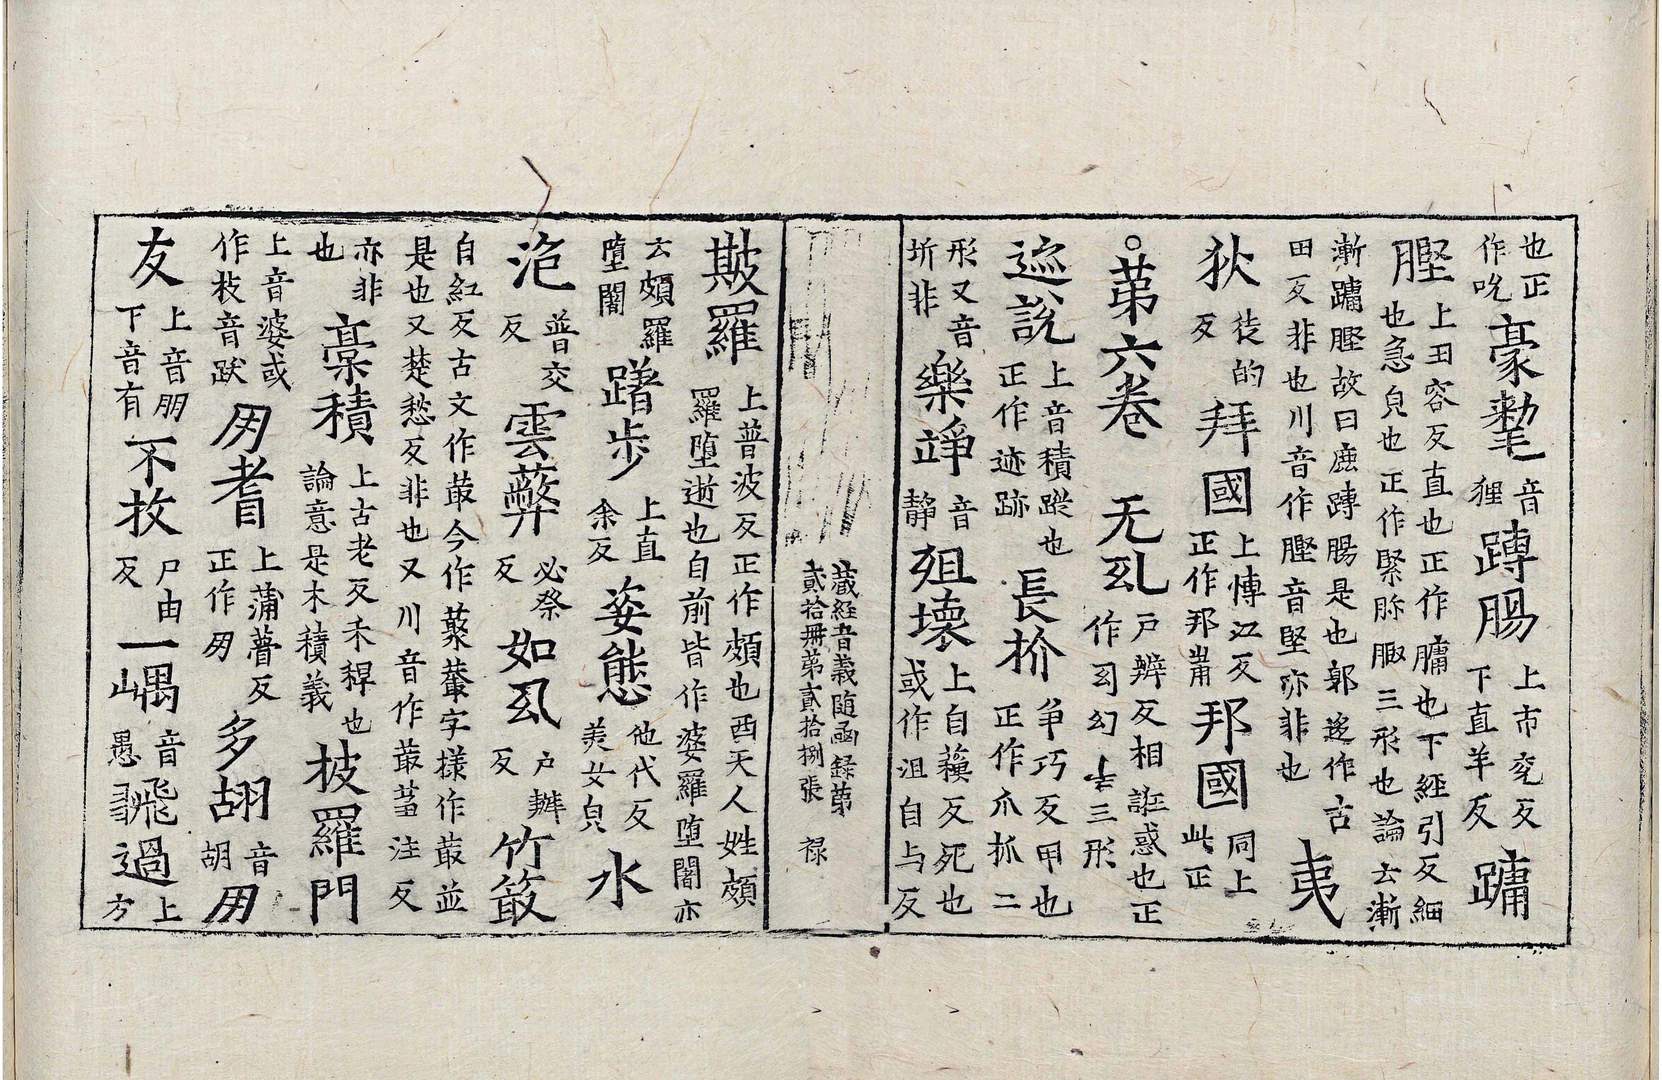 也正作吮豪氂音狸䏝腸上市兖反下直羊反𨄔
䏿上丑容反直也正作𦟛也下經引反細也急皃也正作緊胗腶三形也論云漸
漸𨄔䏿故曰鹿䏝腸是也郭迻作古田反非也川音作䏿音堅亦非也夷
狄徒的反拜國上愽江反正作邦𡴀邦國同上此正
○苐六卷 无㓜户辨反相誑惑也正作幻三形
迹說上音積蹤也正作迹跡長抓争巧反甲也正作爪抓二
形又音圻非樂竫音静殂壊上自藐反死也或作沮自与反
藏經音義隨函録第貳拾册第貳拾捌張 禄
𣀴羅上普波反正作頗也酉天人姓頗羅墮逝也自前皆作婆羅墮闍亦
云頗羅墮闍躇步上直余反姿態他代反美女皃水
泡普交反雲蔽必祭反如㓜户辨反竹䕺
自紅反古文作菆今作藂叢字樣作菆並是也又楚愁反非也又川音作菆䒳注反
亦非也稾積上古老反禾稈也論意是木積義披羅門
上音婆或作柀音跋用耆上蒲瞢反正作朋多胡音胡用
友上音朋下音有不收尸由反一嵎音愚飛過上方